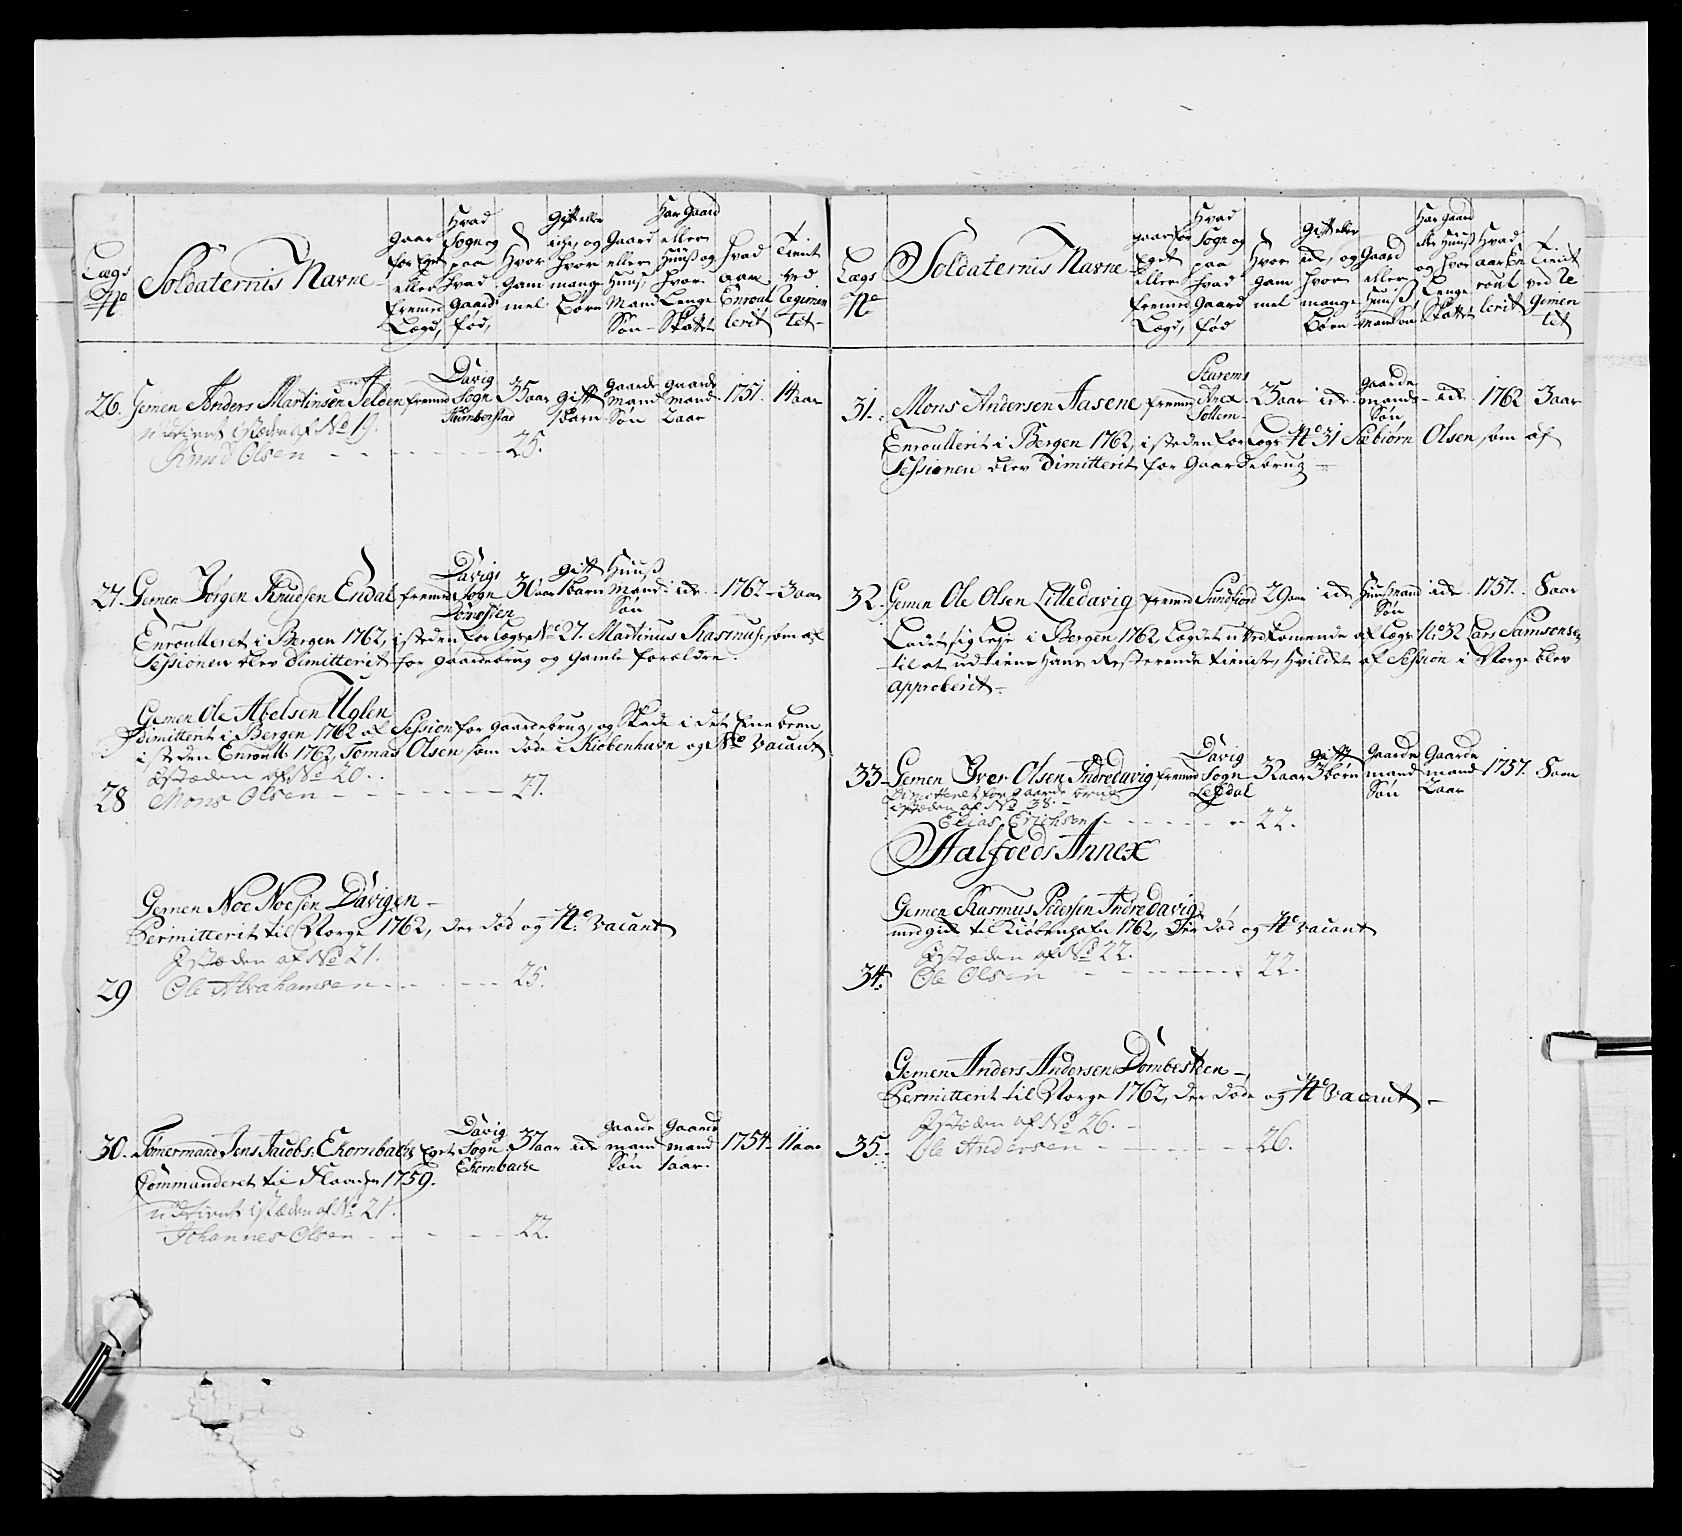 Lægs No
Soldaternis Navne
Gaar for Eget eller fremed Lægd,
Hvad Sogn og paa hvad Gaard fød,
Hvor Gam mel
Gift eller iche, og hvor mange Børn
Gaard eller Huus Mand Søn
Har Gaard eller Huuß og hvor Lenge Skattet
hvad aar Enroul lerit
Tient ved Regimen tet
26. Gemen Anders Martinsen fremed Davig Sogn 35 aar gift 1 barn gaarde mand Søn gaarde mand 2 aar 1751. 14 aar
udtient istæden af No 19.
Knud Olsen 25.
27. Gemen Jørgen Knudsen Endal fremed Davigs Sogn 30 aar gift 1 barn Huuß Mand Søn ide 1762 3 aar
Enroulleret i Bergen 1762, isteden for Lægs No 27. Martinus Rasmus: som af
Sessionen blev Dimitterit for gaardebrug og Gamle forældre.
Gemen Ole Abelsen Uglen
Dimitterit i Bergen 1762 af Session for gaardebrug, og Skade i det Eene been
isteden Enroull: 1762, Tomas Olsen som døde i Kiøbenhavn og No vacant
Istæden af No 20.
28 Mons Olsen 27.
Gemen Noe Noesen Davigen
Permitterit til Norge 1762, der død og No vacant
Istæden af No 21.
29 Ole Abrahamsen 25.
30. Tømermand Jens Jacobs. Ekornbache Eget Davig Sogn Ekornbache 37 aar ide gaarde mand Søn Gaarde mand 1 aar. 1754 11 aar
Commanderet til 1759.
udtient istæden af No 21.
Johannes Olsen 22.
Lægs No
Soldaternis Navne
gaar for Eget eller fremed Lægd,
Hvad Sogn og paa hvad Gaard fød
Hvor Gam mel
Gift eller ide, og hvor mange Børn
Gaard eller Huuß mandsøn
Har Gaard eller Huuß og hvor Lenge Skattet
Hvad aar En roul lerit
Tient ved Re Gimen tet
31. Mons Andersen Aasene fremed Anex 25 aar ide gaarde mands Søn ide 1762 3 aar
Enroullerit i Bergen 1762, isteden for Lægs No 31 Sæbiørn Olsen som af
Sessionen blev Dimitterit for Gaardebrug
32. Gemen Ole Olsen Lilledavig fremed Sundfiord 29 aar ide Huusmand Søn ide 1757. 8 aar
Ladet sig Leje i Bergen 1762 Lægdet uvedkomende af Lægs No 32 Lars Samsonsen
til at udtiene Hans Resterende tieniste, hvildet af Session i Norge blev
approberit
33. Gemen Iver Olsen Indredavig fremed Davig Sogn Lefdal 32 aar gift 3 børn Gaarde mand Søn Gaarde mand 2 aar 1757. 8 aar
Dimitteret for gaarde brug
istæden af No 38.
Elias Erichsen 22.
Aalfoeds Annex
Gemen Rasmus Pedersen Indredavig
til Kiøbenhafn 1762, Der død og No vacant
Istæden af No 22.
34. Ole Olsen 22.
Gemen Anders Andersen Dombesteen
Permitterit til Norge 1762, der døde og No vacant
Istæden af No 26.
35. Ole Andersen 26.